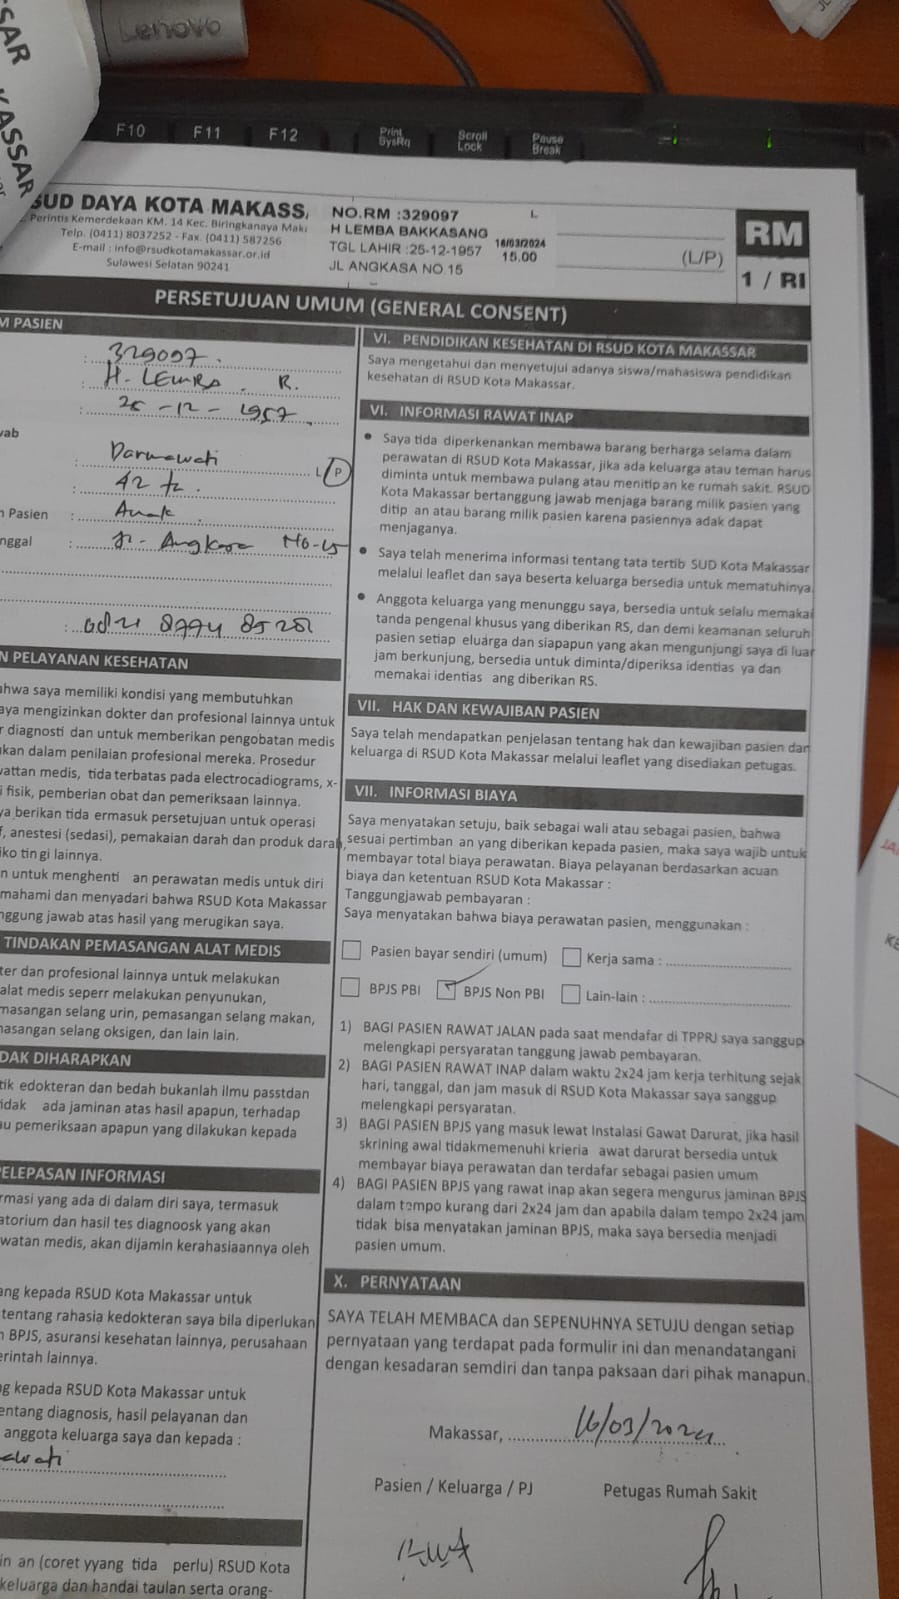 Lenovo
SAR
KASSAR
F10 F11 F12 Print SysRq Scroll Lock Pause Break
SUD DAYA KOTA MAKASS
Perintis Kemerdekaan KM. 14 Kec. Biringkanaya Mak
Telp. (0411) 8037252 - Fax. (0411) 587256
E-mail : info@rsudkotamakassar.or.id
Sulawesi Selatan 90241
NO.RM :329097 L
H LEMBA BAKKASANG
TGL LAHIR :25-12-1957
JL ANGKASA NO.15
16/03/2024
15.00
(L/P)
RM
1 / RI
PERSETUJUAN UMUM (GENERAL CONSENT)
M PASIEN
: 329097.
: H. LEMBA. R.
: 25 -12 - 1957
wab
: Darmawati L/P
: 42 th.
n Pasien : Anak
nggal : Jl. Angkasa No. 15
N PELAYANAN KESEHATAN
ahwa saya memiliki kondisi yang membutuhkan
aya mengizinkan dokter dan profesional lainnya untuk
r diagnosti dan untuk memberikan pengobatan medis
ukan dalam penilaian profesional mereka. Prosedur
wattan medis, tida terbatas pada electrocadiograms, x-
i fisik, pemberian obat dan pemeriksaan lainnya.
ya berikan tida ermasuk persetujuan untuk operasi
f, anestesi (sedasi), pemakaian darah dan produk darah,
iko tin gi lainnya.
n untuk menghenti an perawatan medis untuk diri
mahami dan menyadari bahwa RSUD Kota Makassar
nggung jawab atas hasil yang merugikan saya.
TINDAKAN PEMASANGAN ALAT MEDIS
ter dan profesional lainnya untuk melakukan
alat medis seperr melakukan penyunukan,
masangan selang urin, pemasangan selang makan,
masangan selang oksigen, dan lain lain.
DAK DIHARAPKAN
tik edokteran dan bedah bukanlah ilmu passtdan
idak ada jaminan atas hasil apapun, terhadap
au pemeriksaan apapun yang dilakukan kepada
ELEPASAN INFORMASI
rmasi yang ada di dalam diri saya, termasuk
atorium dan hasil tes diagnoosk yang akan
watan medis, akan dijamin kerahasiaannya oleh
ang kepada RSUD Kota Makassar untuk
tentang rahasia kedokteran saya bila diperlukan
n BPJS, asuransi kesehatan lainnya, perusahaan
erintah lainnya.
ng kepada RSUD Kota Makassar untuk
entang diagnosis, hasil pelayanan dan
anggota keluarga saya dan kepada :
awati
in an (coret yyang tida perlu) RSUD Kota
keluarga dan handai taulan serta orang-
VI. PENDIDIKAN KESEHATAN DI RSUD KOTA MAKASSAR
Saya mengetahui dan menyetujui adanya siswa/mahasiswa pendidikan
kesehatan di RSUD Kota Makassar.
VI. INFORMASI RAWAT INAP
• Saya tida diperkenankan membawa barang berharga selama dalam
perawatan di RSUD Kota Makassar, jika ada keluarga atau teman harus
diminta untuk membawa pulang atau menitip an ke rumah sakit. RSUD
Kota Makassar bertanggung jawab menjaga barang milik pasien yang
ditip an atau barang milik pasien karena pasiennya adak dapat
menjaganya.
• Saya telah menerima informasi tentang tata tertib SUD Kota Makassar
melalui leaflet dan saya beserta keluarga bersedia untuk mematuhinya
• Anggota keluarga yang menunggu saya, bersedia untuk selalu memakai
tanda pengenal khusus yang diberikan RS, dan demi keamanan seluruh
pasien setiap eluarga dan siapapun yang akan mengunjungi saya di luar
jam berkunjung, bersedia untuk diminta/diperiksa identias ya dan
memakai identias ang diberikan RS.
VII. HAK DAN KEWAJIBAN PASIEN
Saya telah mendapatkan penjelasan tentang hak dan kewajiban pasien dan
keluarga di RSUD Kota Makassar melalui leaflet yang disediakan petugas.
VII. INFORMASI BIAYA
Saya menyatakan setuju, baik sebagai wali atau sebagai pasien, bahwa
sesuai pertimban an yang diberikan kepada pasien, maka saya wajib untuk
membayar total biaya perawatan. Biaya pelayanan berdasarkan acuan
biaya dan ketentuan RSUD Kota Makassar :
Tanggungjawab pembayaran :
Saya menyatakan bahwa biaya perawatan pasien, menggunakan :
Pasien bayar sendiri (umum) Kerja sama :
BPJS PBI BPJS Non PBI Lain-lain :
1) BAGI PASIEN RAWAT JALAN pada saat mendafar di TPPRJ saya sanggup
melengkapi persyaratan tanggung jawab pembayaran.
2) BAGI PASIEN RAWAT INAP dalam waktu 2x24 jam kerja terhitung sejak
hari, tanggal, dan jam masuk di RSUD Kota Makassar saya sanggup
melengkapi persyaratan.
3) BAGI PASIEN BPJS yang masuk lewat Instalasi Gawat Darurat, jika hasil
skrining awal tidakmemenuhi krieria awat darurat bersedia untuk
membayar biaya perawatan dan terdafar sebagai pasien umum
4) BAGI PASIEN BPJS yang rawat inap akan segera mengurus jaminan BPJS
dalam tempo kurang dari 2x24 jam dan apabila dalam tempo 2x24 jam
tidak bisa menyatakan jaminan BPJS, maka saya bersedia menjadi
pasien umum.
X. PERNYATAAN
SAYA TELAH MEMBACA dan SEPENUHNYA SETUJU dengan setiap
pernyataan yang terdapat pada formulir ini dan menandatangani
dengan kesadaran semdiri dan tanpa paksaan dari pihak manapun.
Makassar, 16/03/2024
Pasien / Keluarga / PJ Petugas Rumah Sakit